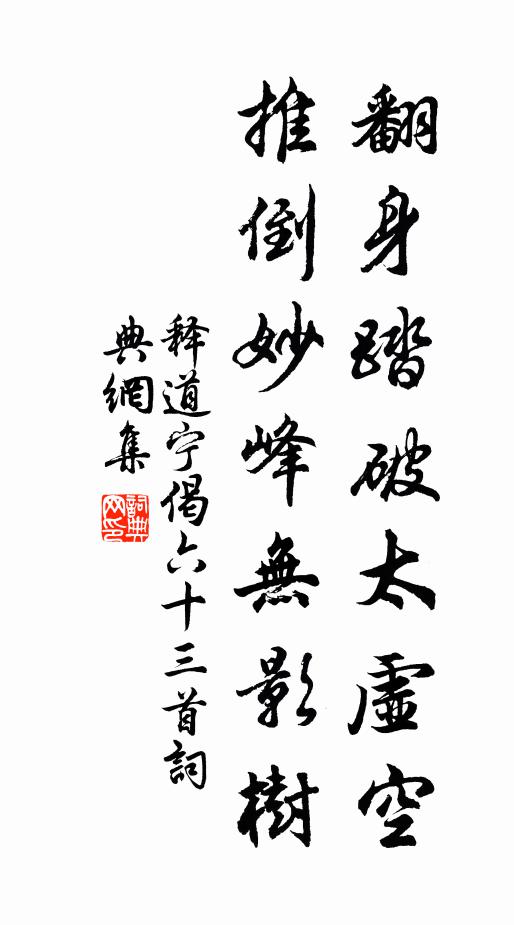 翻身踏破太虛空
推倒妙峰無影樹
释道宁偈六十三首詞
典網集
詞典
网印